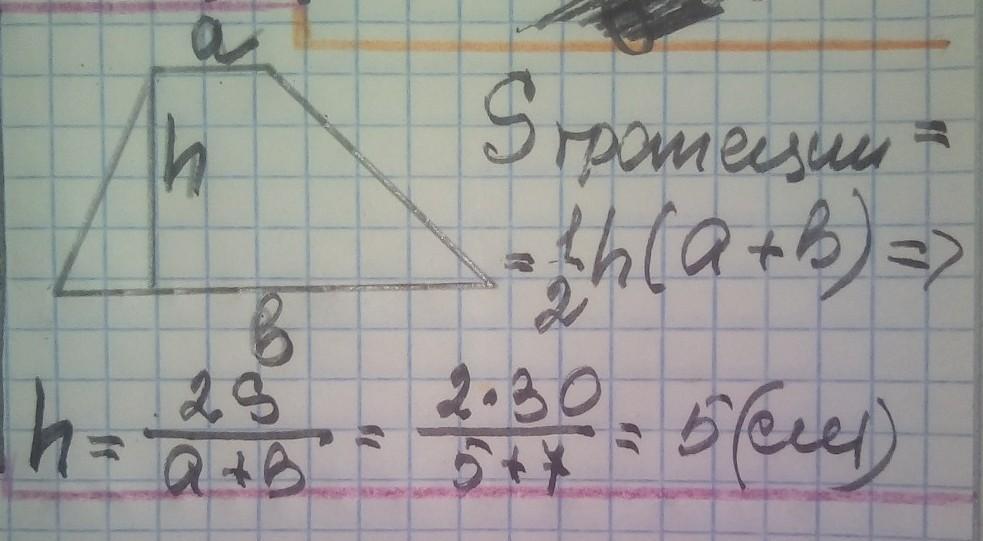 a
h
в
S трапеции =
= 1/2 h(a+в) =>
h = 2S/a+в = 2·30/5+7 = 5(см)